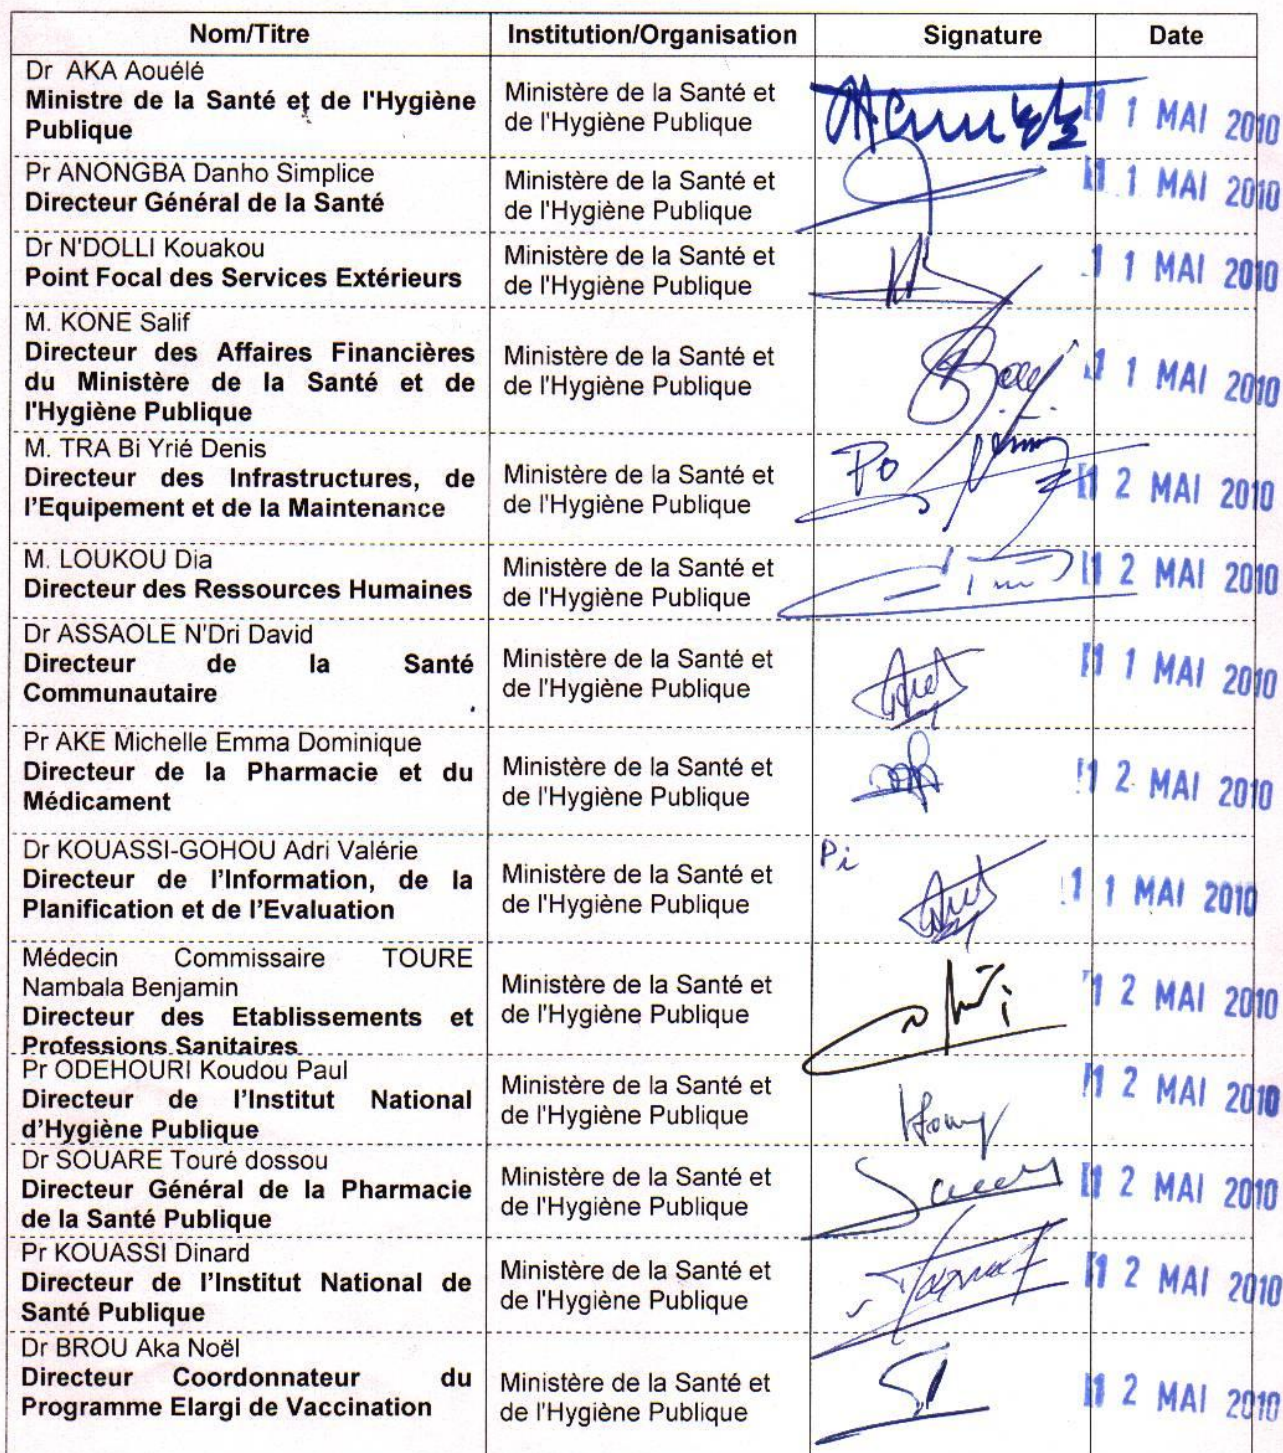 Nom/Titre Institution/Organisation Signature Date
Dr AKA Aouélé
Ministre de la Santé et de l'Hygiène
Publique
Ministère de la Santé et
de l'Hygiène Publique
11 MAI 2010
Pr ANONGBA Danho Simplice
Directeur Général de la Santé
Ministère de la Santé et
de l'Hygiène Publique
11 MAI 2010
Dr N'DOLLI Kouakou
Point Focal des Services Extérieurs
Ministère de la Santé et
de l'Hygiène Publique
11 MAI 2010
M. KONE Salif
Directeur des Affaires Financières
du Ministère de la Santé et de
l'Hygiène Publique
Ministère de la Santé et
de l'Hygiène Publique
11 MAI 2010
M. TRA Bi Yrié Denis
Directeur des Infrastructures, de
l’Equipement et de la Maintenance
Ministère de la Santé et
de l'Hygiène Publique
Po
12 MAI 2010
M. LOUKOU Dia
Directeur des Ressources Humaines
Ministère de la Santé et
de l'Hygiène Publique
12 MAI 2010
Dr ASSAOLE N'Dri David
Directeur de la Santé
Communautaire
Ministère de la Santé et
de l'Hygiène Publique
11 MAI 2010
Pr AKE Michelle Emma Dominique
Directeur de la Pharmacie et du
Médicament
Ministère de la Santé et
de l'Hygiène Publique
12 MAI 2010
Dr KOUASSI-GOHOU Adri Valérie
Directeur de l’Information, de la
Planification et de l’Evaluation
Ministère de la Santé et
de l'Hygiène Publique
Pi
11 MAI 2010
Médecin Commissaire TOURE
Nambala Benjamin
Directeur des Etablissements et
Professions Sanitaires
Ministère de la Santé et
de l'Hygiène Publique
12 MAI 2010
Pr ODEHOURI Koudou Paul
Directeur de l’Institut National
d’Hygiène Publique
Ministère de la Santé et
de l'Hygiène Publique
12 MAI 2010
Dr SOUARE Touré dossou
Directeur Général de la Pharmacie
de la Santé Publique
Ministère de la Santé et
de l'Hygiène Publique
12 MAI 2010
Pr KOUASSI Dinard
Directeur de l’Institut National de
Santé Publique
Ministère de la Santé et
de l'Hygiène Publique
12 MAI 2010
Dr BROU Aka Noël
Directeur Coordonnateur du
Programme Elargi de Vaccination
Ministère de la Santé et
de l'Hygiène Publique
12 MAI 2010